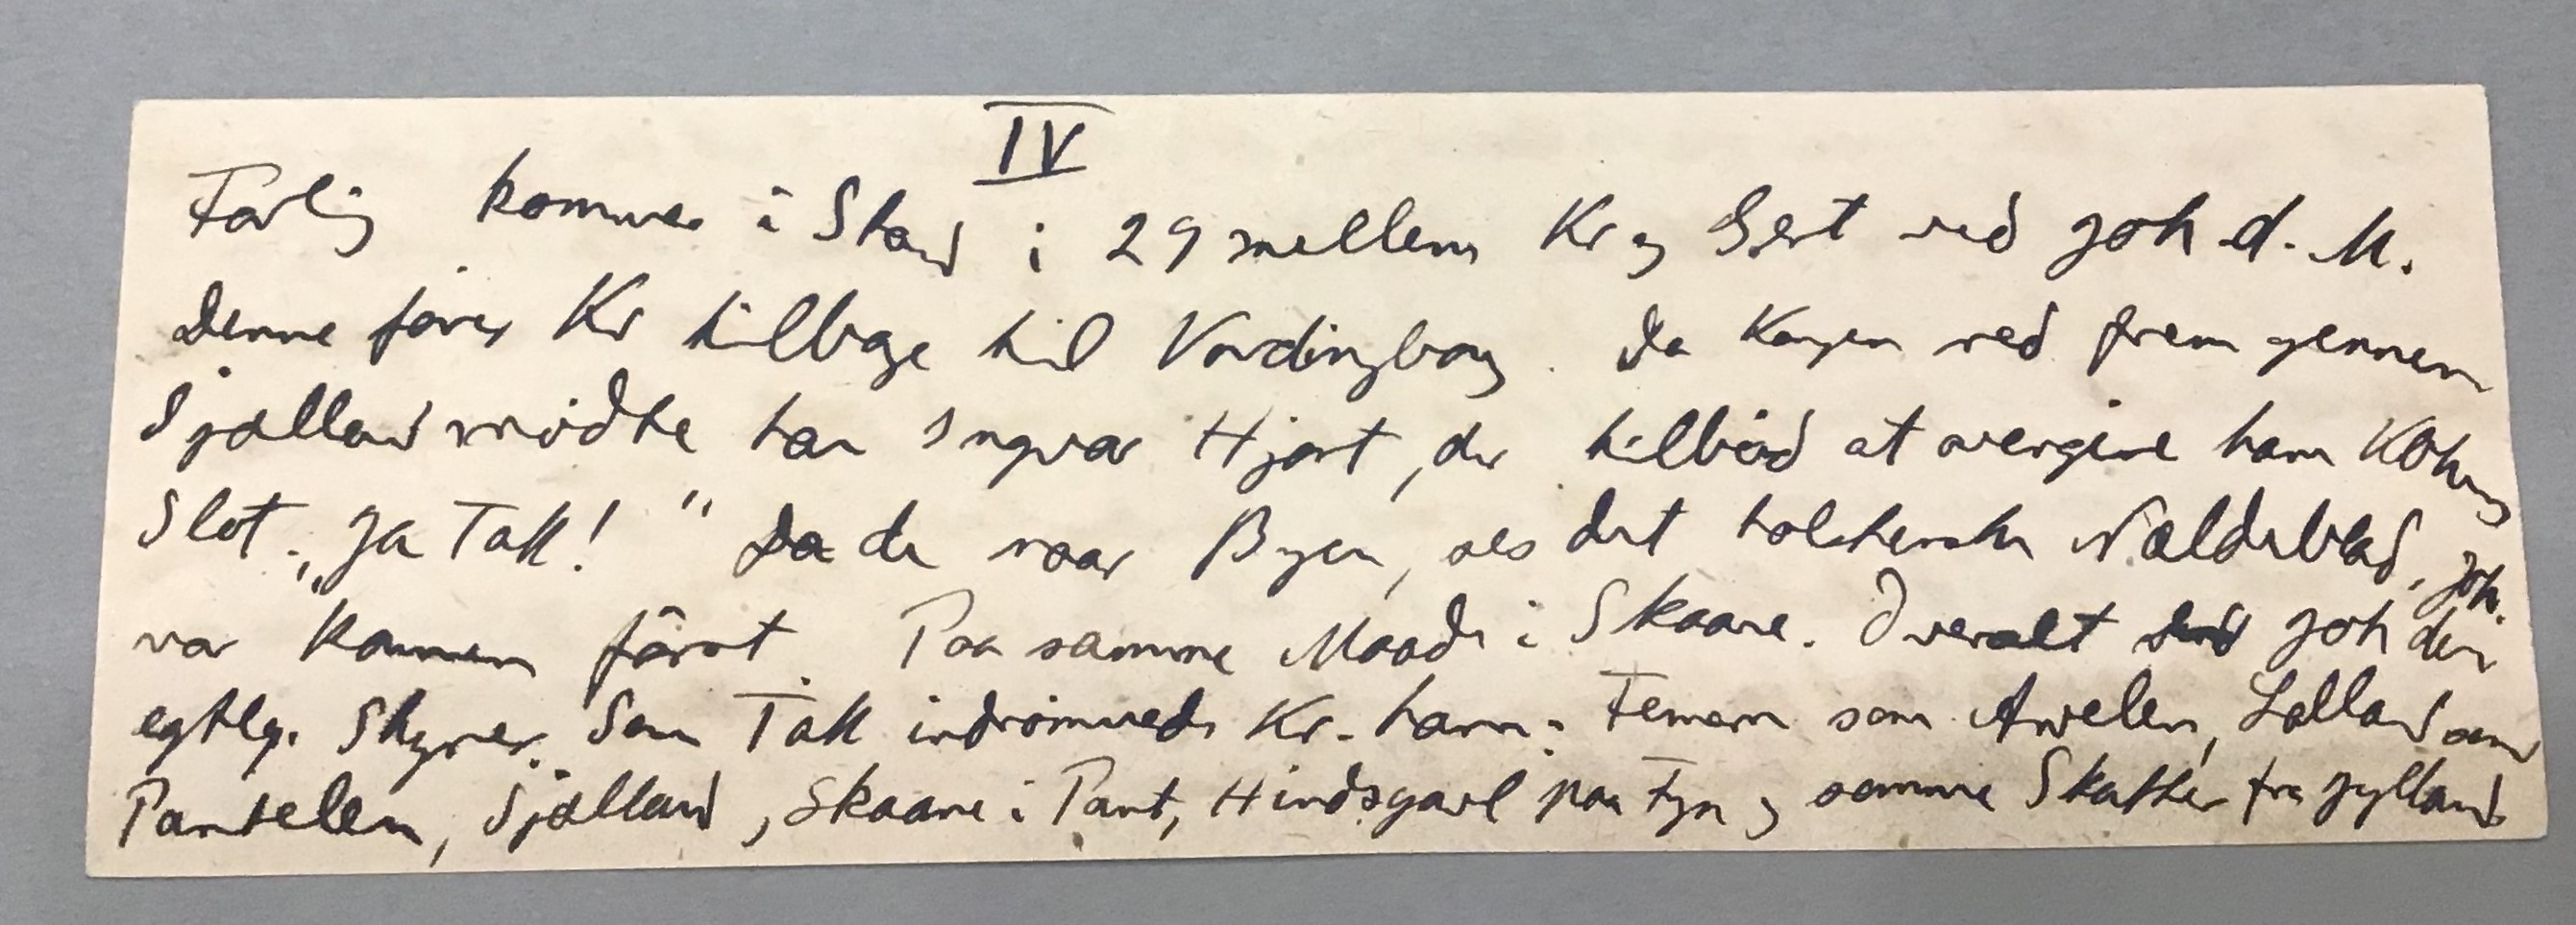 IV
Forlig kommer i Stand i 29 mellem Kr og Gert ved Joh d. M.
Denne fører Kr tilbage til Vordingborg. Da Kongen red frem gennem
Sjælland mødte han Ingvar Hjort, der tilbød at overgive ham Kbhvns
Slot. "Ja Tak!" Da de naar Byen, ses det holstenske Nældeblad, Joh.
var kommen først. Paa samme Maade i Skaane. Overalt Joh den
egtlg. Styrer. Som Tak indrømmede Kr. ham: Femern som Arvelen, Lolland som
Pantelen, Sjælland, Skaane i Pant, Hindsgavl paa Fyn og samme Skatter fra Jylland